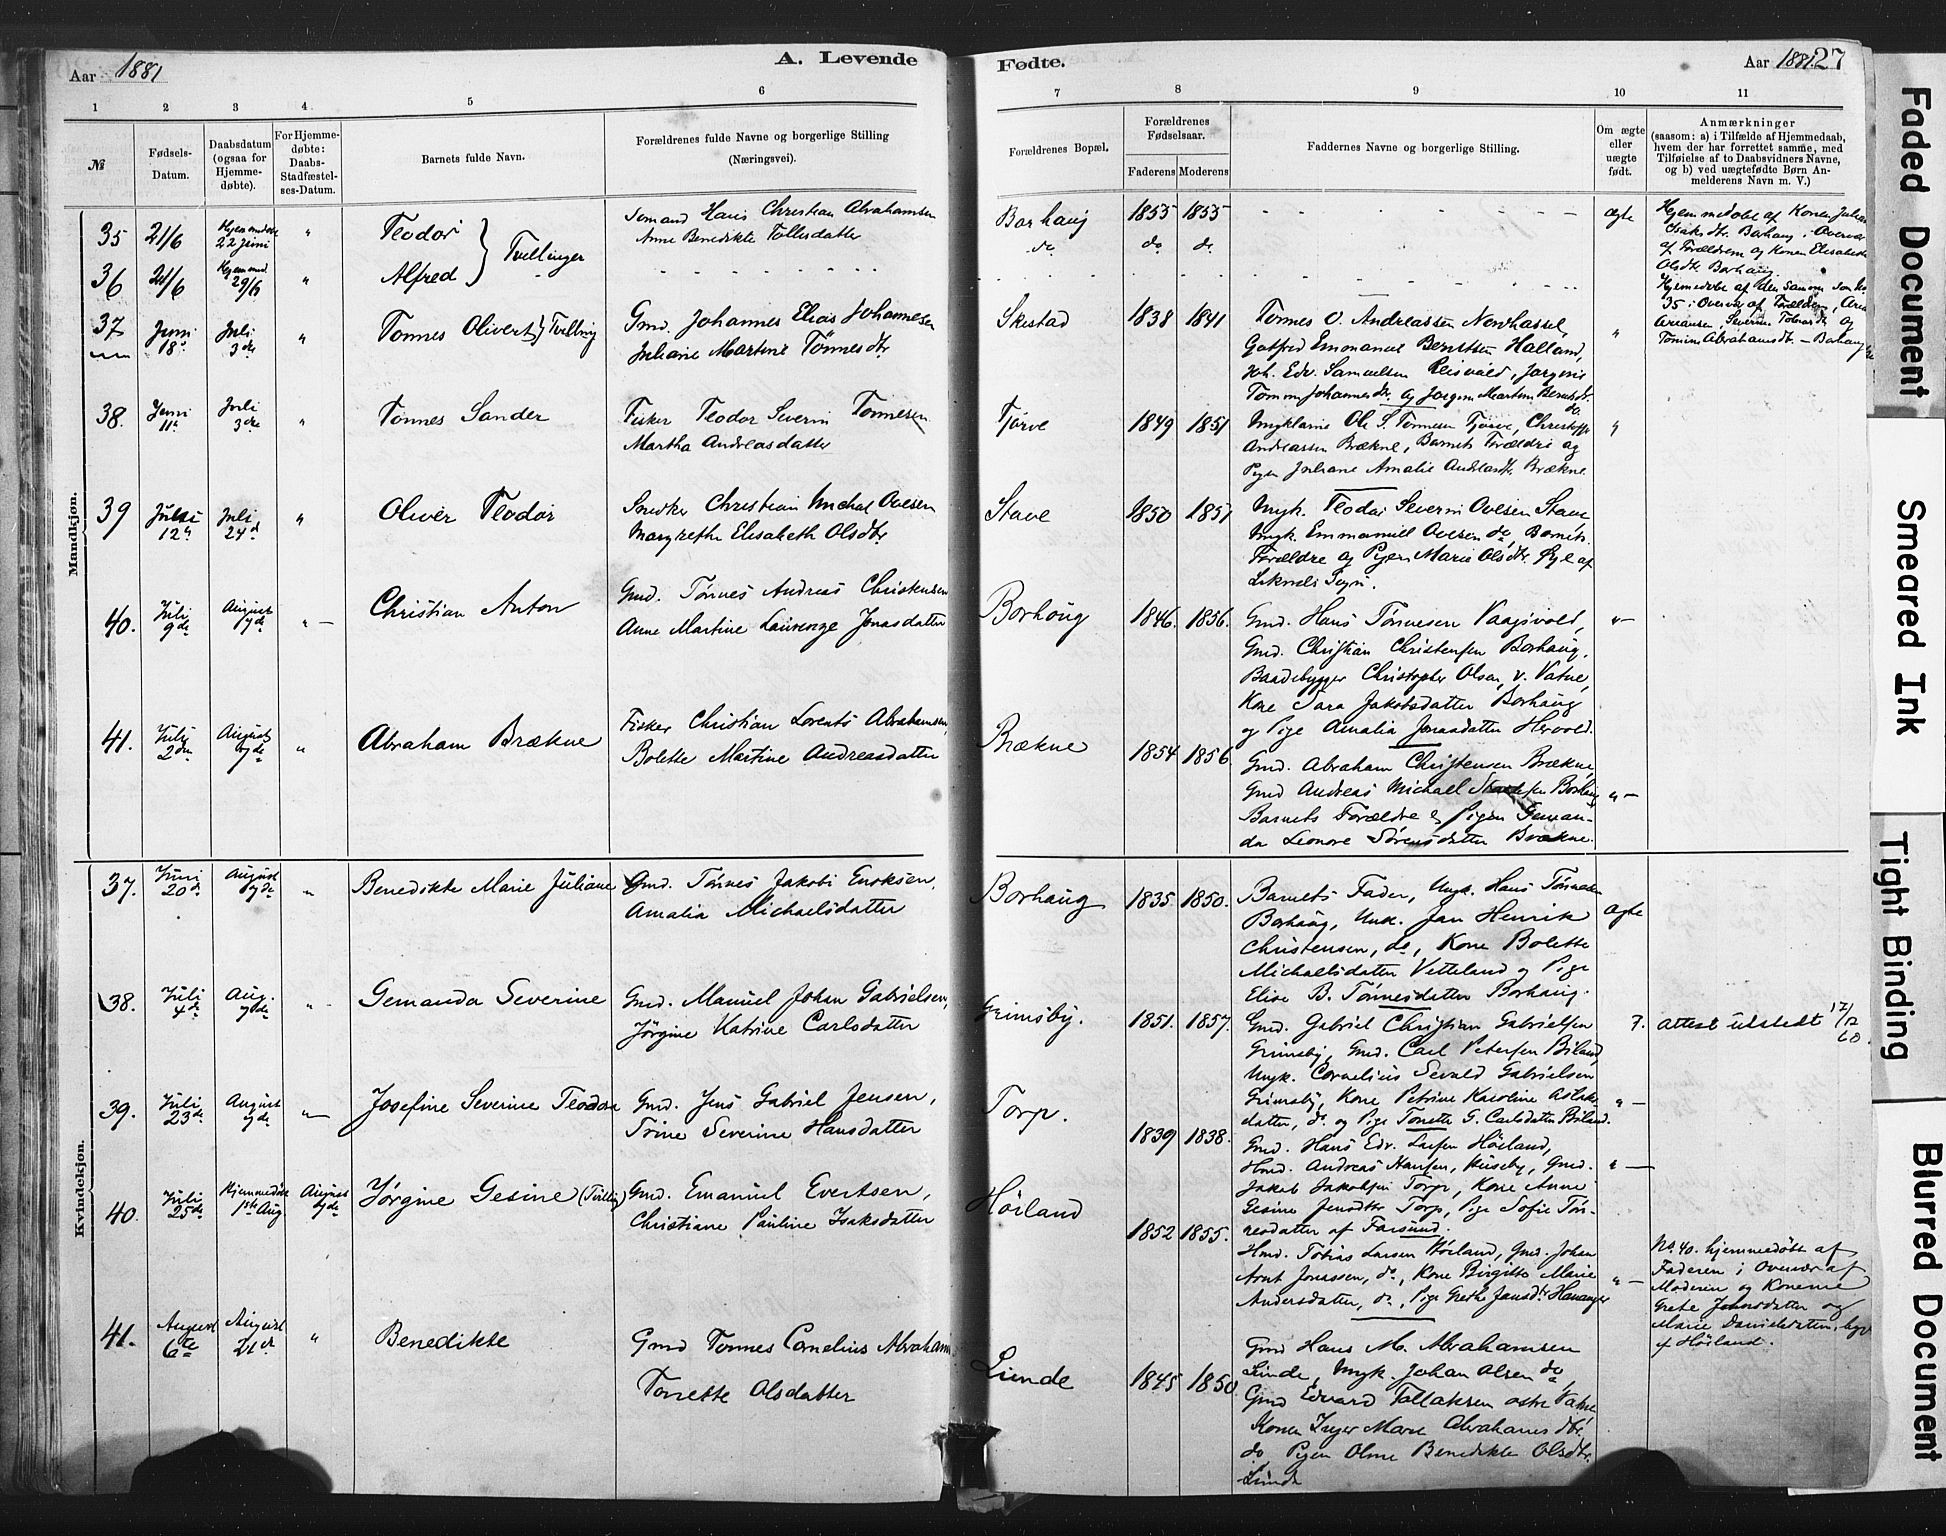 Aar 1881
A. Levende
Fødte.
Aar 1881. 27
1 2 3 4 5 6 7 8 9 10 11
№
Fødsels-
Datum.
Daabsdatum
(ogsaa for
Hjemme-
døbte).
For Hjemme-
døbte:
Daabs-
Stadfæstel-
ses-Datum.
Barnets fulde Navn.
Forældrenes fulde Navne og borgerlige Stilling
(Næringsvei).
Forældrenes Bopæl.
Forældrenes
Fødselsaar.
Faderens Moderens
Faddernes Navne og borgerlige Stilling.
Om ægte
eller
uægte
født.
Anmærkninger
(saasom: a) i Tilfælde af Hjemmedaab,
hvem der har forrettet samme, med
Tilføielse af to Daabsvidners Navne,
og b) ved uægtefødte Børn An-
melderens Navn m. V.)
Mandkjøn.
35 21/6 Hjemmedøbt 22 Juni " Teodor } Tvillinger
Sømand Hans Christian Abrahamsen
Anne Benedikte Tollisdatter
Borhaug 1855 1855 Ægte
do do do
Hjemmedøbt af Konen Juliane
Isaksdtr. Borhaug i Overvær
af Forældrene og Konen Elisabeth
Olsdtr Borhaug.
36 21/6 Hjemmed. 29/6 " Alfred
Hjemmedøbt af den samme som No
35 i Overvær af Forældrene,
Tomine Abrahamsdtr. - Borhaug
37 Juni 18 Juli 3die " Tonnes Olivert } Tvilling
Gmd. Johannes Elias Johannesen
Juliane Martine Tønnesdtr
Skestad 1838 1841 "
Tonnes O. Andreassen Nordhassel,
Gotfred Emmanuel Berntsen Halland,
Joh. Edv. Samuelsen Reisvold, Jørgine
Tomine Johannesdtr. og Jørgine Martine Berntsdtr.
do
38. Juni 11 Juli 3die " Tonnes Sander
Fisker Teodor Severin Tonnesen
Martha Andreasdatter
Tjørve 1849 1851 "
Ungkarls Ole S. Tonnesen Tjørve, Christoffer
Andreassen Brækne, Barnets Forældre og
Pigen Juliane Amalie Andreasdtr. Brækne
39 Juli 12 Juli 24d " Oliver Teodor
Snedker Christian Michal Ovesen
Margrethe Elisabeth Olsdtr
Stave 1850 1851
Ungk. Teodor Severin Ovesen Stave
Ungk. Emmanuel Ovesen do, Barnets
Forældre og Pigen Marie Olsdtr. Øye af
Liknes Sogn.
40. Juli 9de August 7de "- Christian Anton
Gmd. Tønnes Andreas Christensen
Anne Martine Laurenze Jonasdatter
Borhaug 1846. 1856. "-
Gmd. Hans Tønnesen Vaagsvold,
Gmd. Christian Christensen Borhaug,
Baadebygger Christopher Olsen, v. Vatne,
Kone Sara Jakobsdatter Borhaug
og Pige Amalia Jonasdatter Hervold.
41. Juli 2den August 7de " Abraham Brækne
Fisker Christian Lorents Abrahamsen,
Bolette Martine Andreasdatter
Brækne 1854 1856 "-
Gmd. Abraham Christensen Brækne,
Gmd Andreas Michael Borhaug
Barnets Forældre & Pigen Geman-
da Leonore Sørensdatter Brækne.
Kvindekjøn.
37. Juni 20d August 7de " Benedikte Marie Juliane
Gmd. Tønnes Jakobi Enoksen,
Amalia Michaelsdatter
Borhaug 1835 1850. Ægte
Barnets Fader, Ungk. Hans Tønnesen
Borhaug, Unk. Jan Henrik
Christensen, do, Kone Bolette
Michaelsdatter Vetteland og Pige
Elise B. Tønnesdatter Borhaug.
38. Juli 4de Aug. 7de " Gemanda Severine
Gmd. Manuel Johan Gabrielsen,
Jörgine Katrine Carlsdatter
Grimsby. 1851. 1857.
Gmd. Gabriel Christian Gabrielsen
Grimsby, Gmd. Carl Petersen Biland,
Ungk. Cornelius Sevald Gabrielsen
Grimsby, Kone Petrine Karoline Aslak-
datter, do og Pige Tonette G. Carlsdatter Biland.
Attest utstedt 17/12 60.
39. Juli 23de August 7de "- Josefine Severine Teodora
Gmd. Jens Gabriel Jensen,
Trine Severine Hansdatter
Torp. 1839 1838. "-
Gmd. Hans Edv. Larsen Höiland,
Hmd. Andreas Hansen, Huseby, Gmd.
Jakob Jakobsen Torp, Kone Anne
Gesine Jensdatter Torp, Pige Sofie Tön-
nesdatter af Farsund.
40. Juli 25de Hjemmedøbt 1ste Aug. August 7de Jörgine Gesine (Tvilling)
Gmd. Emanuel Evertsen,
Christiane Pauline Isaksdatter
Höiland 1852 1855. "-
Hmd. Tobias Larsen Höiland, Gmd. Johan
Arnt Jonassen, do, Kone Birgitte Marie
Andersdatter, do, Pige Grethe Jansdtr Hananger
No. 40. hjemmedöbt af
Faderen i Overvær af
Moderen og Konerne
Grete Johnsdatter og
Marie Danielsdatter, begge
af Höiland.
41. August 6te August 21de " Benedikte
Gmd Tonnes Cornelius Abrahamsen
Tonette Olsdatter
Lunde 1845 1850
Gmd Hans M. Abrahamsen
Lunde, Ungk. Johan Olsen do,
Gmd Edvard Tollaksen østre Vatne
Konen Inger Marie Abrahamsdtr.
do Pigen Oline Benedikte Olsdtr.
Lunde
Faded Document
Smeared Ink
Tight Binding
Blurred Document